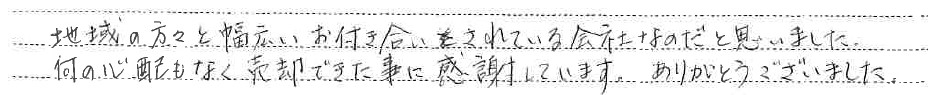 地域の方々と幅広いお付き合いをされている会社なのだと思いました。
何の心配もなく売却できた事に感謝しています。ありがとうございました。